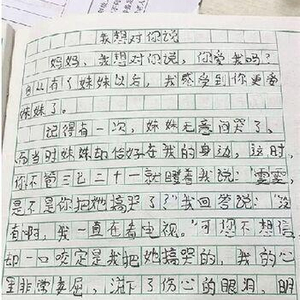 我想对你说
妈妈，我想对你说，你爱我吗？
自从有了妹妹以后，我感受到你更爱
妹妹了。
记得有一次，妹妹无意间哭了，
而当时妹妹却恰好在我的身边，这时，
你不管三七二十一就瞪着我说："雯雯，
是不是你把她搞哭了？"我回答说："没
有啊，我一直在看电视。"可您不想信，
却一口咬定是我把她搞哭的，我的心
里非常委屈，流下了伤心的眼泪，明